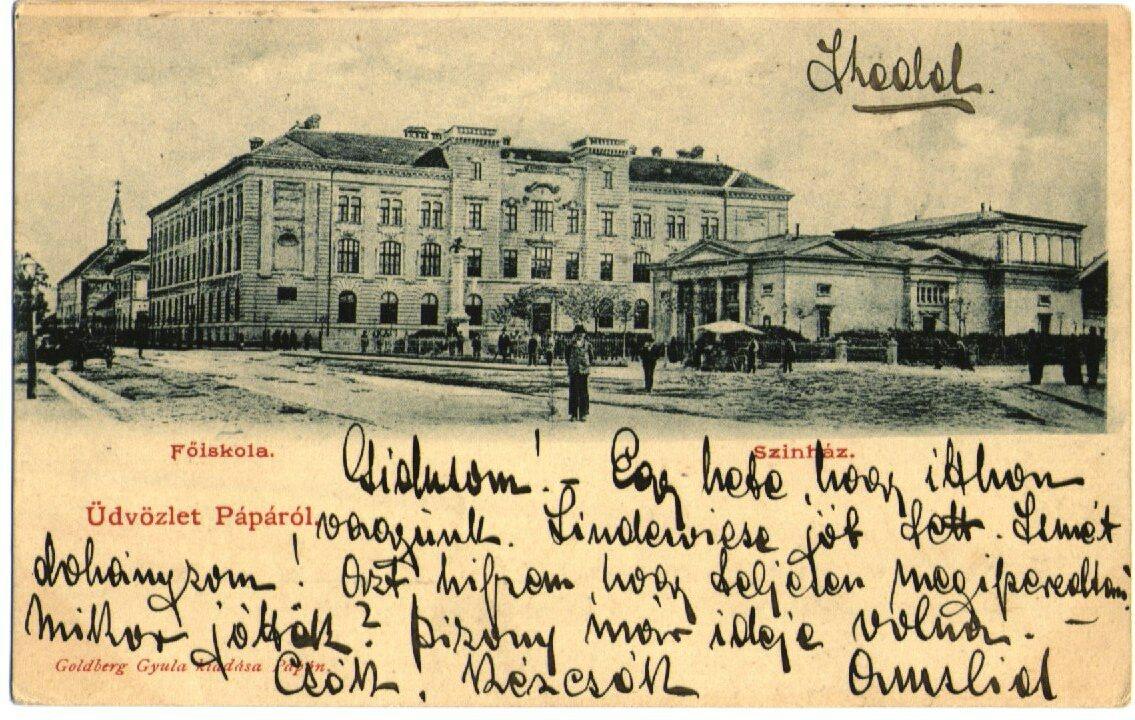 Főiskola.
Szinház.
Üdvözlet Pápáról.
Egy hete, hogy itthon
vagyunk. Lindewiese jót tett. Ismét
dohányzom! Azt hiszem, hogy teljesen
Mikor jöttök? Bizony már ideje volna. -
Goldberg Gyula kiadása Pápán.
Csók! Kézcsók